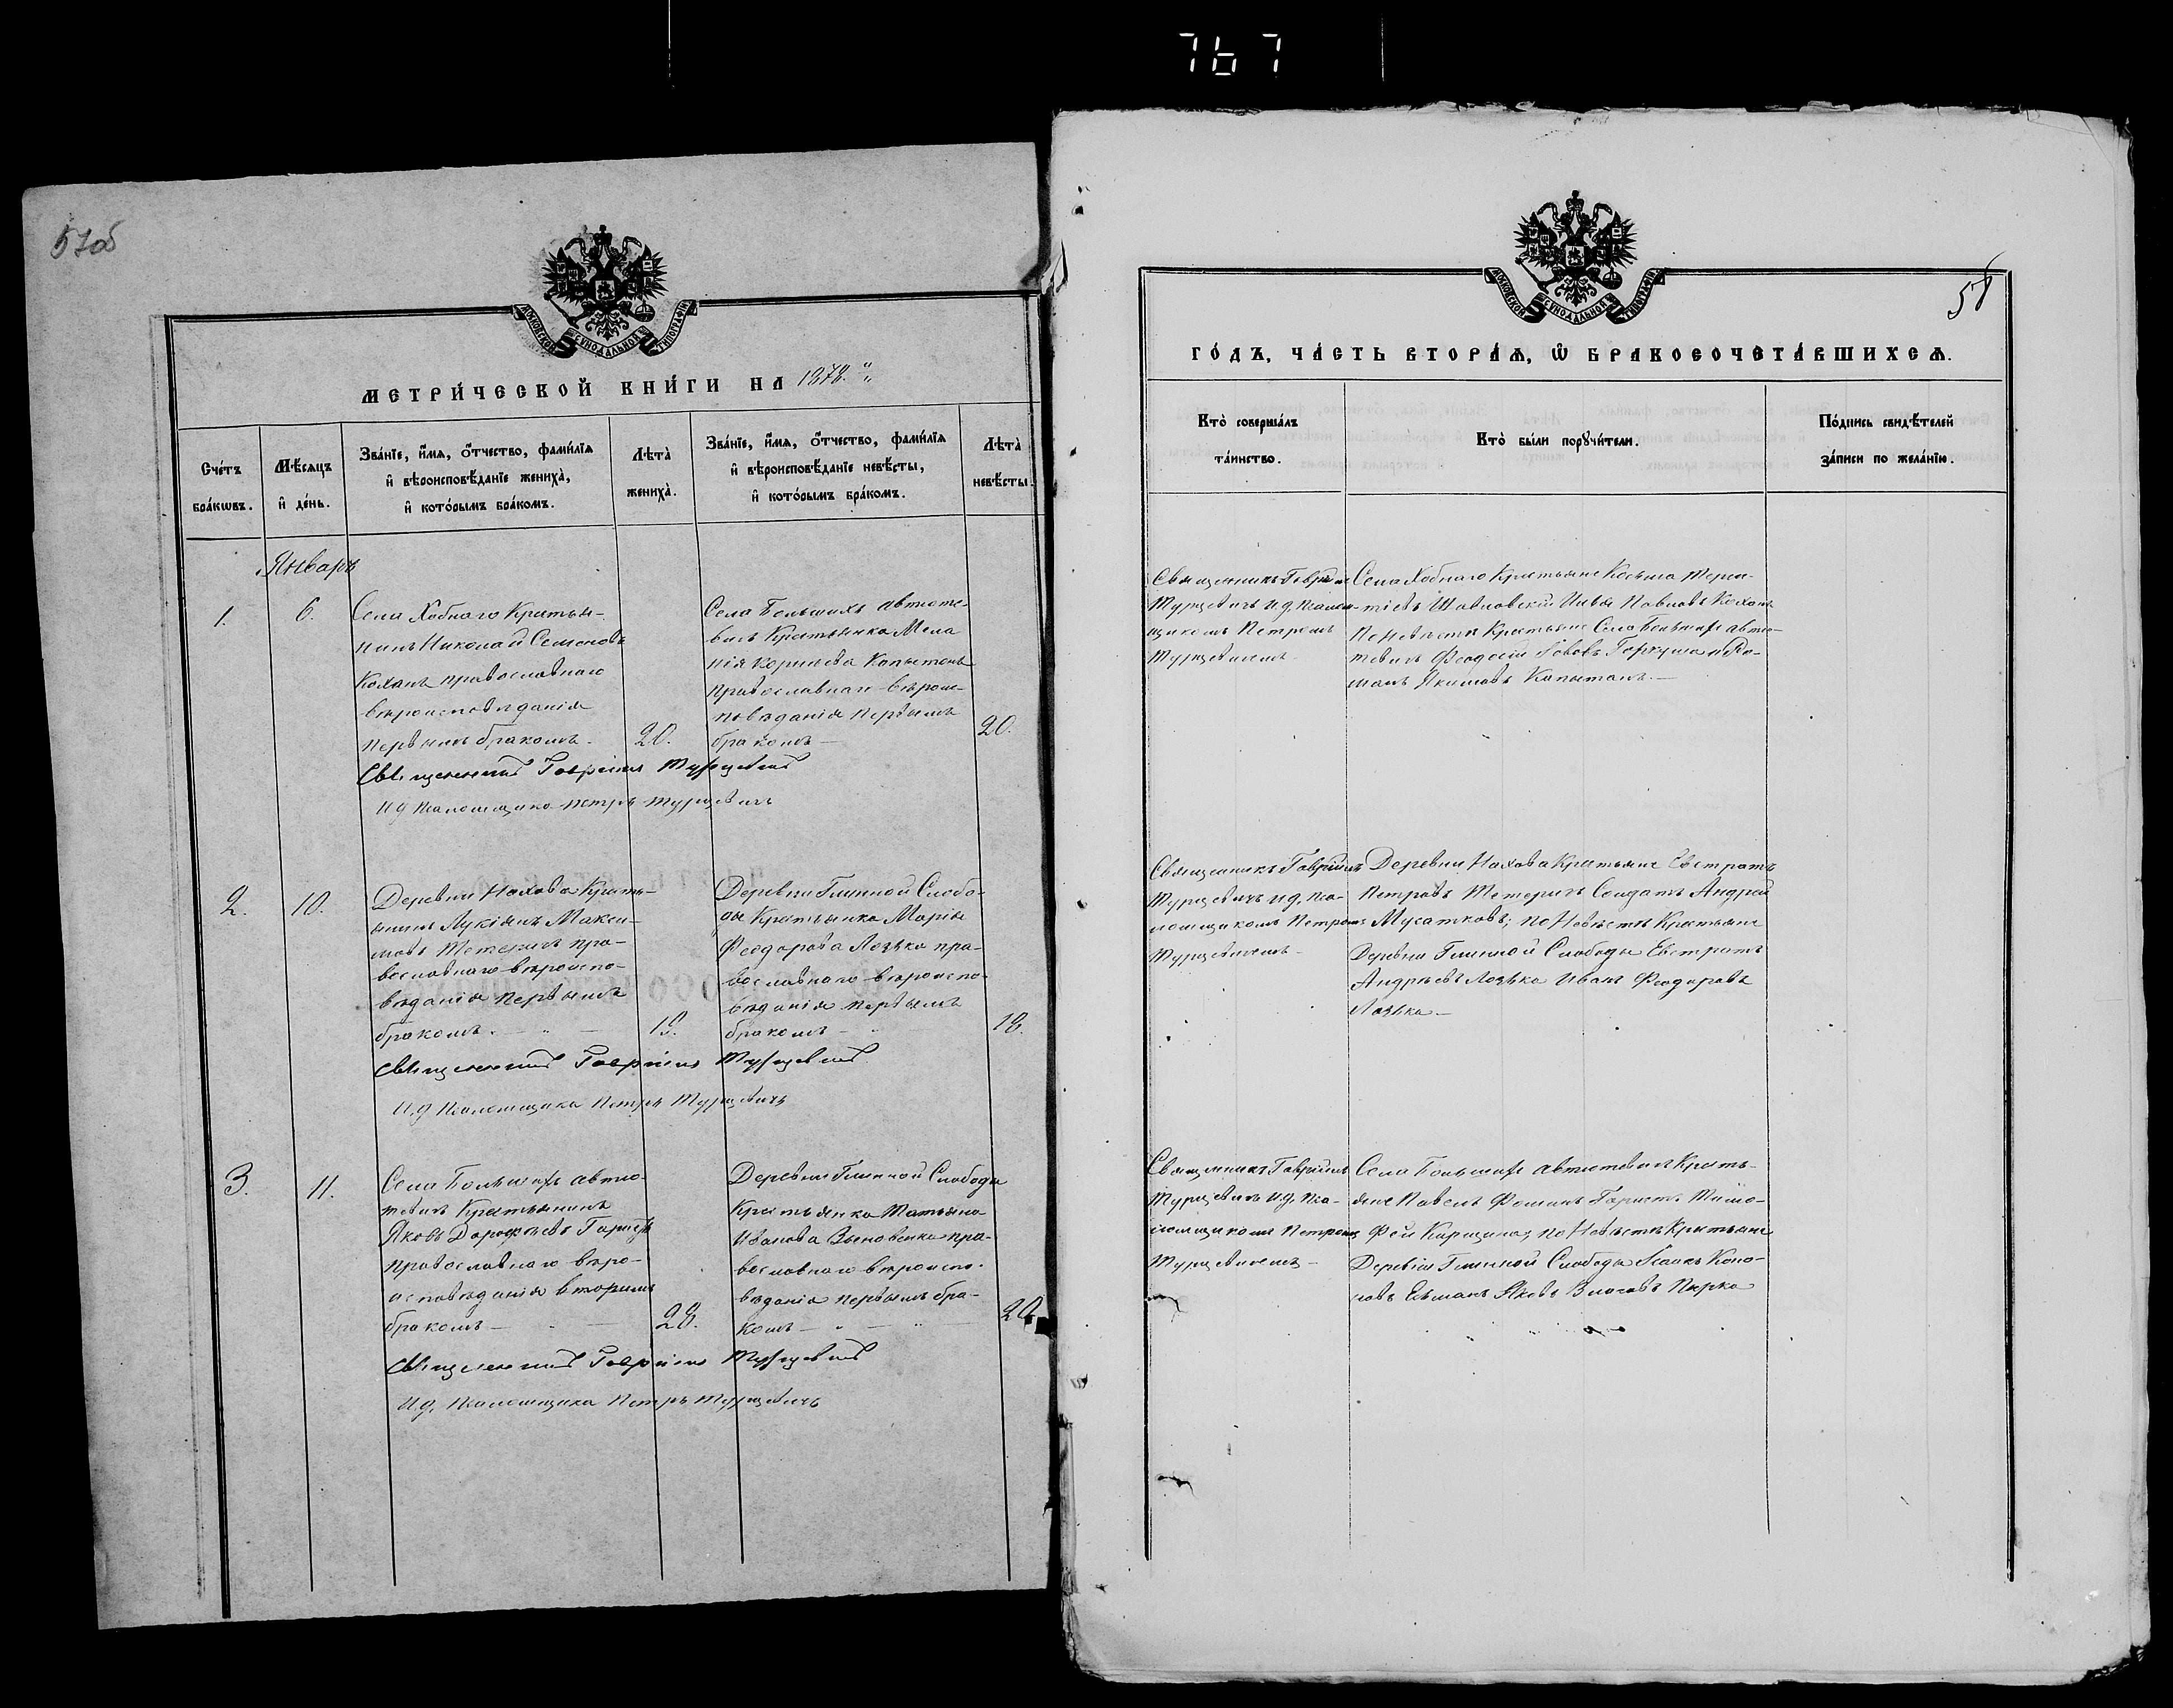 767
57об
МОСКОВСКОЙ СѴНОДАЛЬНОЙ ТИПОГРАФІИ
МЕТРИ́ЧЕСКОЙ КНИ́ГИ НА 1878.
Сче́тъ бра́кѡвъ.
Мѣ́сяцъ и҆ де́нь.
Зва́нїе, и҆́мя, ѻ҆́тчество, фами́лїя и҆ вѣроисповѣ́данїе жениха̀, и҆ кото́рымъ бра́комъ.
Лѣта̀ жениха̀.
Зва́нїе, и҆́мя, ѻ҆́тчество, фами́лїя и҆ вѣроисповѣ́данїе невѣ́сты, и҆ кото́рымъ бра́комъ.
Лѣта̀ невѣ́сты.
Январь
1.
6.
Села Хобнаго Кресть-
нинъ Николай Семеновъ
Коханъ православнаго
вѣроисповѣданія
первымъ бракомъ.
20.
Села Большихъ Автюте-
вичь Крестьянка Мела
нія Корнѣева Копытень
православнаго вѣроис-
повѣданія первымъ
бракомъ —
20.
Священникъ Гавріилъ Турцевичъ
И д Псаломщика Петръ Турцевичъ
2.
10.
Деревни Нахова Кресть-
янинъ Лукіянъ Макси-
мовъ Тетеричъ пра-
вославнаго вѣроиспо-
вѣданія первымъ
бракомъ. —
19.
Деревни Глинной Слобо-
ды Крестьянка Марія
Феодорова Лозька пра-
вославнаго вѣроиспо-
вѣданія первымъ
бракомъ —
18.
Священникъ Гавріилъ Турцевичъ
И.д Псаломщика Петръ Турцевичъ
3.
11.
Села Большихъ Автю-
тевичь Крестьянинъ
Яковъ Дорофеевъ Гористъ
православнаго вѣро-
исповѣданія вторымъ
бракомъ —
28.
Деревни Глинной Слободы
Крестьянка Татьяна
Иванова Зыновенко пра-
вославнаго вѣроиспо-
вѣданія первымъ бра-
комъ —
20.
Священникъ Гавріилъ Турцевичъ
И.д. Псаломщика Петръ Турцевичъ
58
МОСКОВСКОЙ СѴНОДАЛЬНОЙ ТИПОГРАФІИ
ГО́ДЪ, ЧА́СТЬ ВТОРА́Я, Ѡ҆ БРАКОСОЧЕТА́ВШИХСЯ.
Кто̀ соверша́лъ та́инство.
Кто̀ бы́ли порꙋчи́тели.
По́дпись свидѣ́телей за́писи по жела́нїю.
Священникъ Гавріилъ
Турцевичъ и.д. Псалом-
щикомъ Петромъ
Турцевичемъ —
Села Хобнаго Крестьяне Косьма Терен-
тіевъ Шавловскій Илья Павловъ Коханъ
По Невѣстѣ Крестьяне Села Большихъ Автю-
тевичь Феодосій Львовъ Горкуша и Ро-
манъ Якимовъ Копытень. —
Священникъ Гавріилъ
Турцевичъ и.д. Пса-
ломщикомъ Петромъ
Турцевичемъ —
Деревни Нахова Крестьяне Евстратъ
Петровъ Тетеричъ Солдатъ Андрей
Мусатковъ; по Невѣстѣ Крестьяне
Деревни Глинной Слободы Евстратъ
Андреевъ Лозька Иванъ Феодоровъ
Лозька —
Священникъ Гавріилъ
Турцевичъ и.д. Пса-
ломщикомъ Петромъ
Турцевичемъ —
Села Большихъ Автютевичь Кресть-
яне Павелъ Фоминъ Гористъ Тимо-
фей Карицына; по Невѣстѣ Крестьяне
Деревни Глинной Слободы Исаакъ Коно-
новъ Ельманъ Яковъ Власовъ Пырко